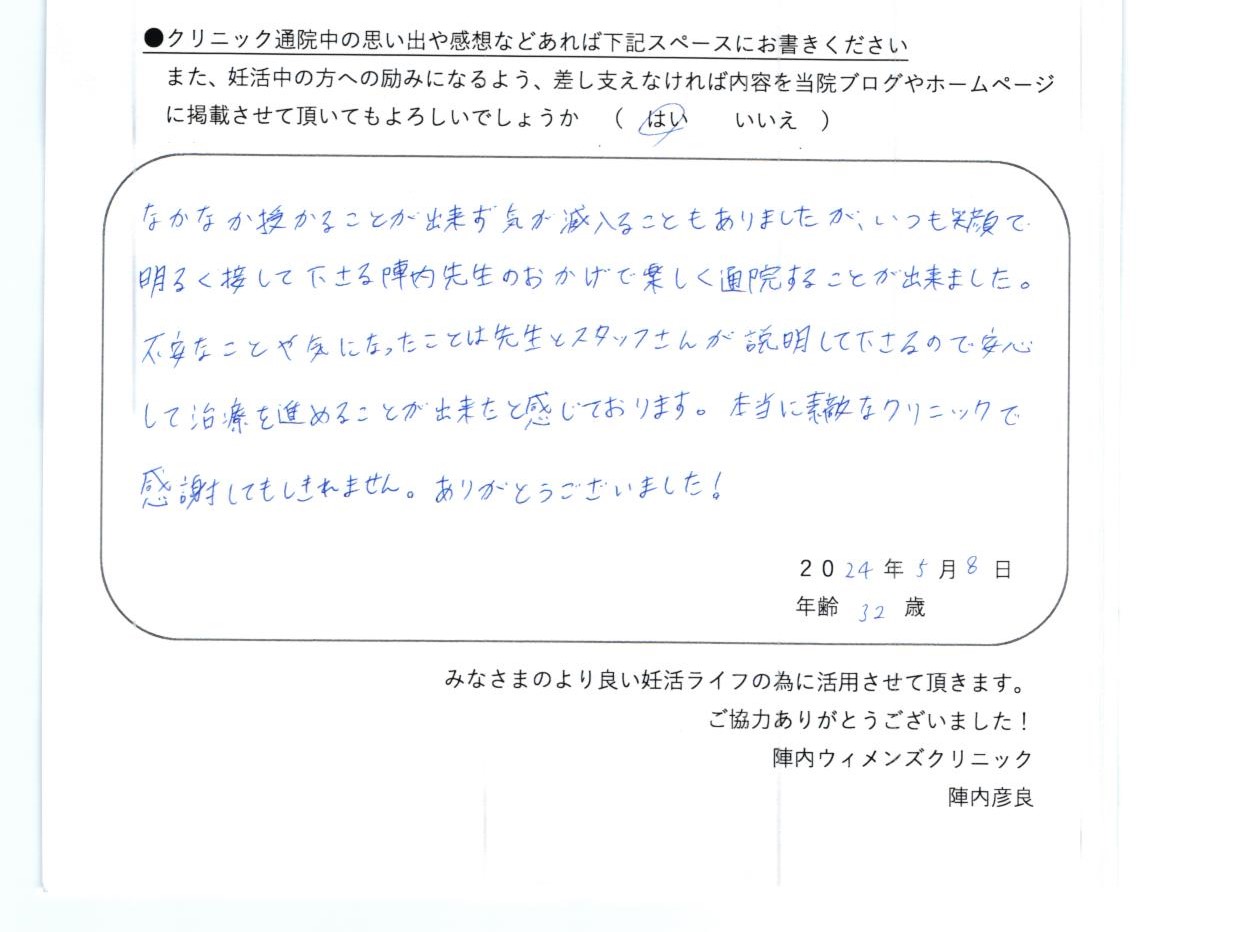 ●クリニック通院中の思い出や感想などあれば下記スペースにお書きください
また、妊活中の方への励みになるよう、差し支えなければ内容を当院ブログやホームページ
に掲載させて頂いてもよろしいでしょうか （ はい いいえ ）
なかなか授かることが出来ず気が滅入ることもありましたが、いつも笑顔で
明るく接して下さる陣内先生のおかげで楽しく通院することが出来ました。
不安なことや気になったことは先生とスタッフさんが説明して下さるので安心
して治療を進めることが出来たと感じております。本当に素敵なクリニックで
感謝してもしきれません。ありがとうございました！
2024年5月8日
年齢 32 歳
みなさまのより良い妊活ライフの為に活用させて頂きます。
ご協力ありがとうございました！
陣内ウィメンズクリニック
陣内彦良